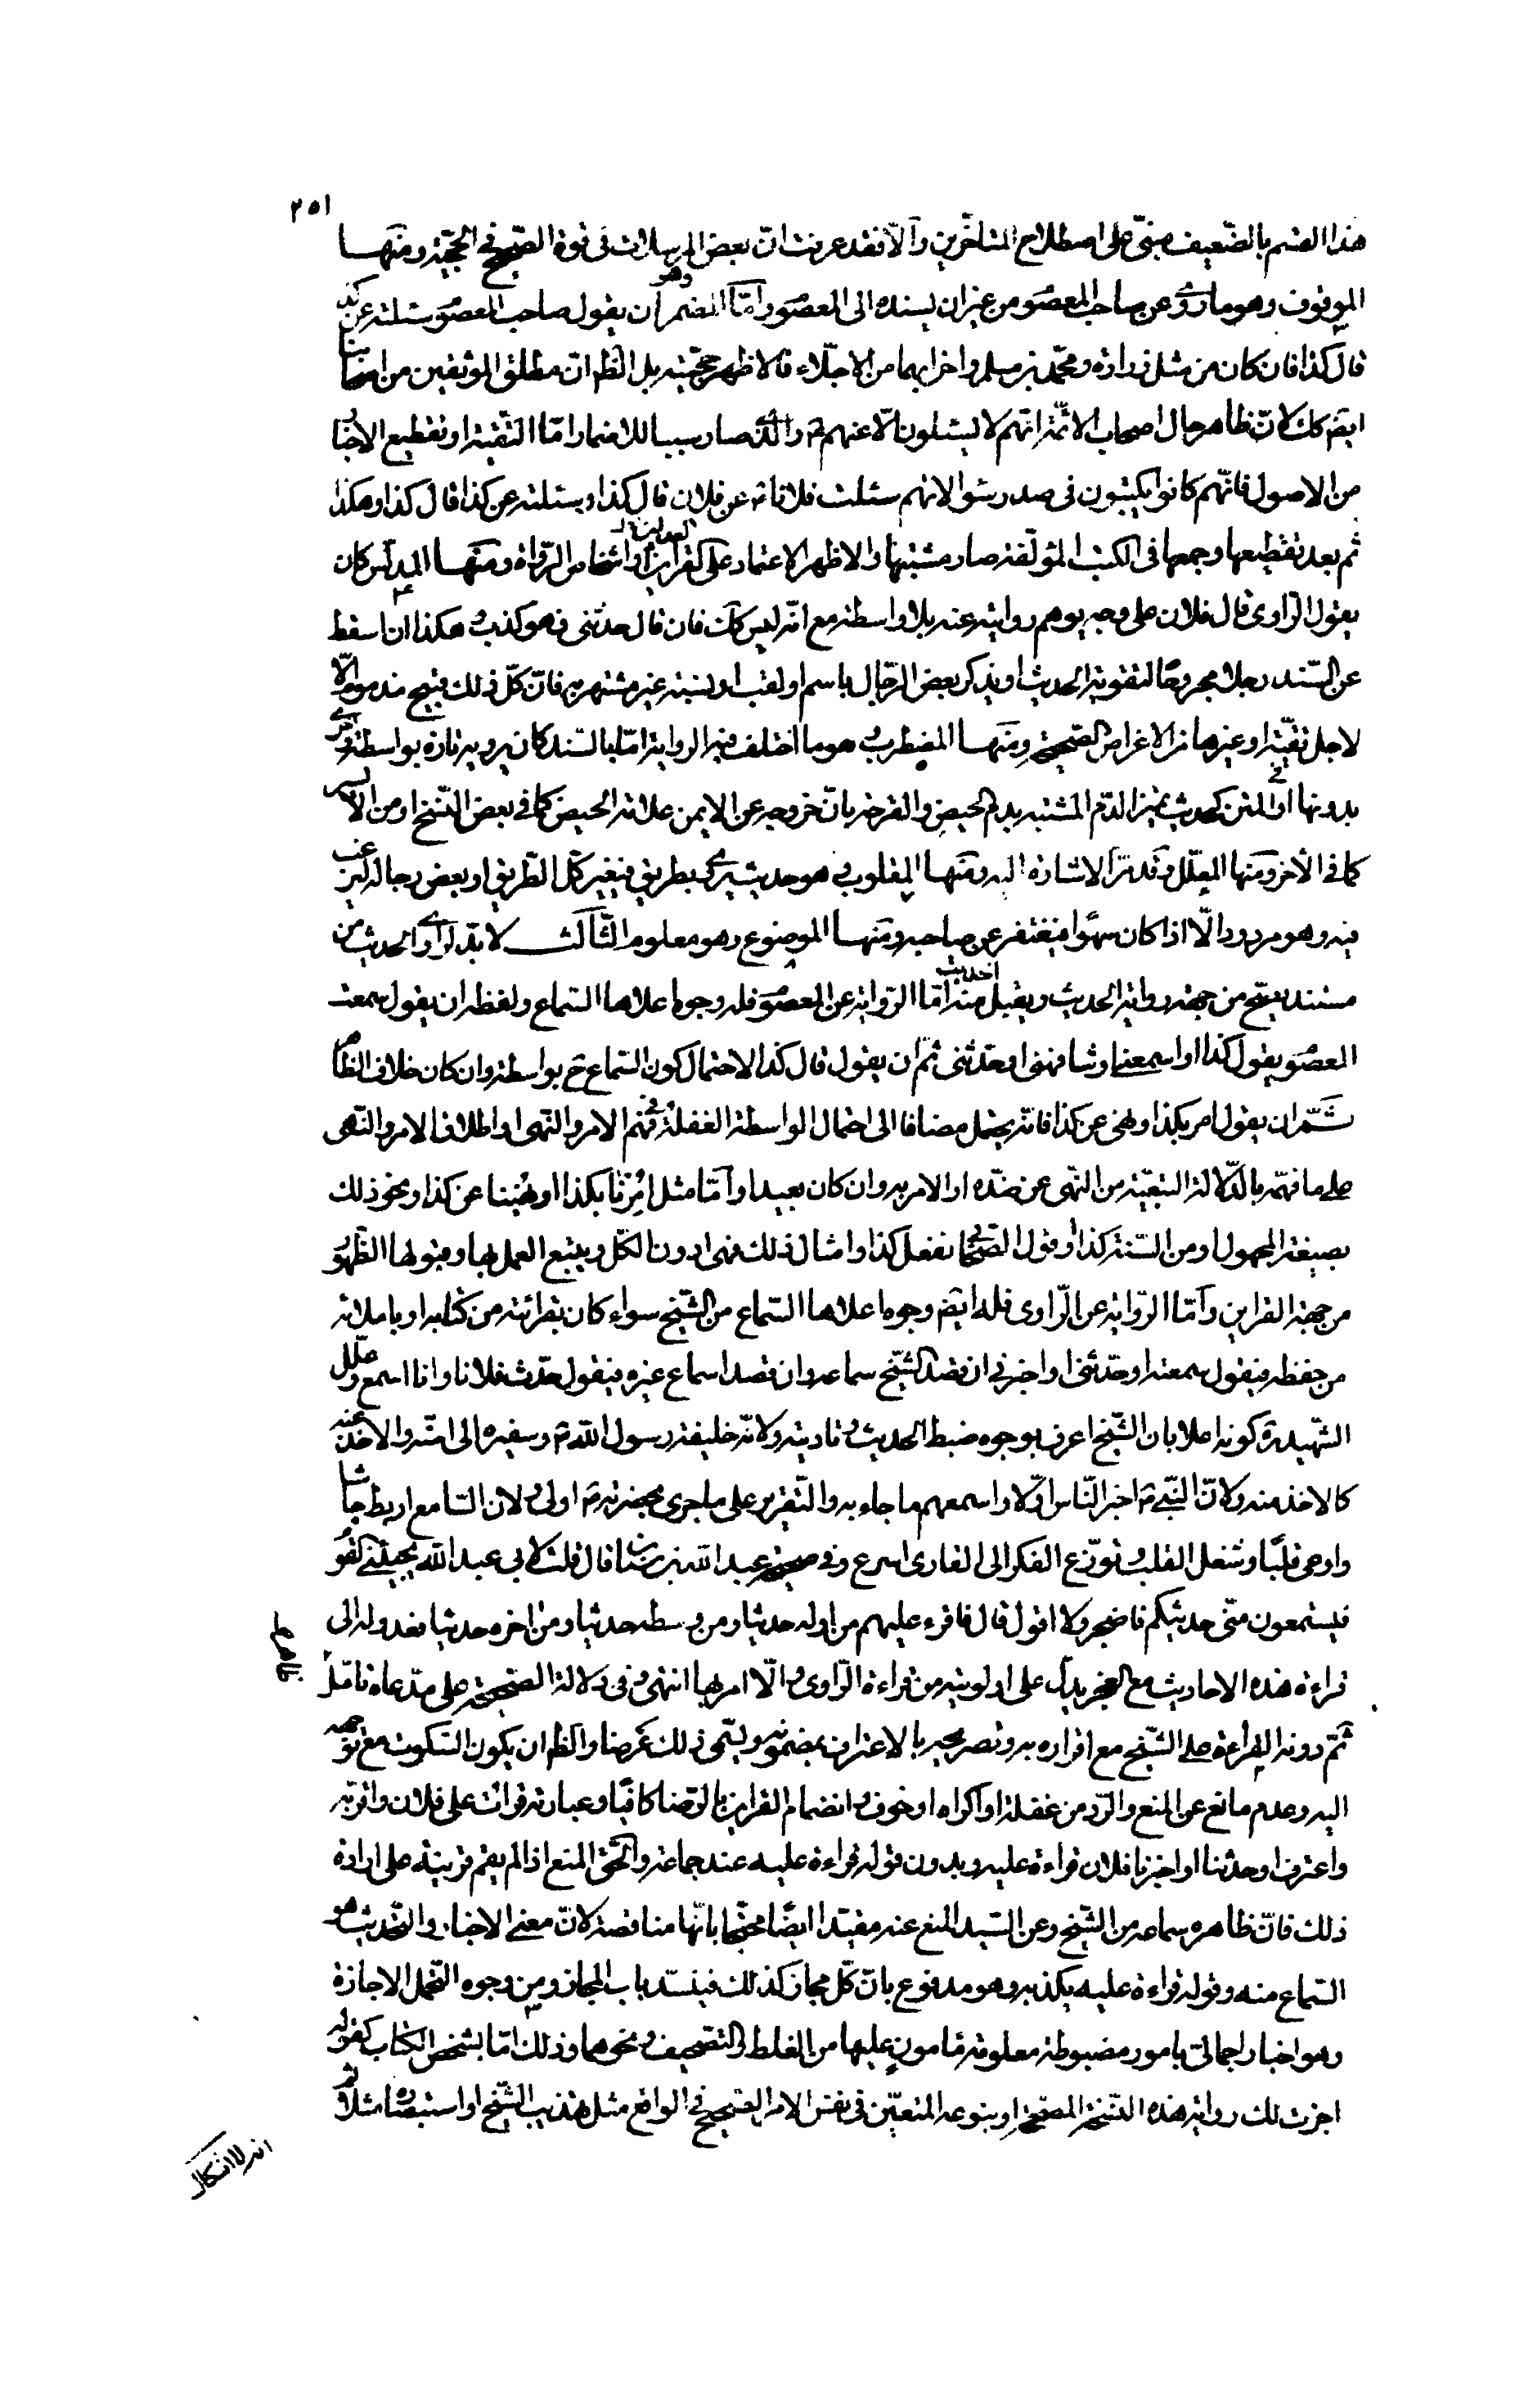 ٢٥١
هذا القسم بالضّعيف مبنىّ على اصطلاح المتاخّرين والّا فقد عرفت انّ بعض المرسلات فى قوة الصّحيح فى الحجّيّة ومنها
الموقوف وهو ما روى عن صاحب المعصوم من غير ان يسنده الى المعصوم وامّا المضمر وهو ان يقول صاحب المعصوم سئلته عن كذا
قال كذا فان كان من مثل زرارة ومحمّد بن مسلم واضرابهما من الاجلّاء فالاظهر حجّيّته بل الظّم انّ مطلق الموثقين من اصحابنا
ايضم كك لانّ ظاهر حال اصحاب الائمّة انّهم لا يسئلون الّا عنهم ع والّذى صار سببا للاضمار امّا التقيّة او تقطيع الاخبار
من الاصول فانّهم كانوا يكتبون فى صدر سئوالاتهم سئلت فلانا ع عن فلان قال كذا وسئلته عن كذا قال كذا وهكذا
ثم بعد تقطيعها وجمعها فى الكتب المؤلّفة صار مشتبها والاظهر الاعتماد على القراين واشخاص الرّواة ومنها المدلّس كان
يقول الرّاوى قال فلان على وجه يوهم روايته عنه بلا واسطة مع انّه ليس كك فان قال حدّثنى فهو كذب وهكذا ان اسقط
عن السّند رجلا مجروحًا لتقوية الحديث او يذكر بعض الرّجال باسم او لقب او نسبة غير مشتهر به فانّ كلّ ذلك قبيح مذموم الّا
لاجل تقيّة او غيرها من الاغراض الصّحيحة ومنها المضطرب وهو ما اختلف فيه الرواية امّا بالسّند كان يرويه تارة بواسطة واخرى
بدونها او فى المتن كحديث تميز الدّم المشتبه بدم الحيض والقرحة بانّ خروجه عن الايمن علامة الحيض كما فى بعض النّسخ او من الايسر
كما فى الأخر ومنها المعلّل وقد مرّ الاشارة اليه ومنها المقلوب وهو حديث يروى بطريق فيغيّر كلّ الطّريق او بعض رجاله ليرغب
فيه وهو مردود الّا اذا كان سهوًا فيغتفر عن صاحبه ومنها الموضوع وهو معلوم الثّالث لا بدّ لراوى الحديث من
مستند يصحّ من جهته رواية الحديث ويقبل منه امّا الرّواية عن المعصوم فله وجوه اعلاها السّماع ولفظه ان يقول سمعت
المعصوم يقول كذا او اسمعنى او شافهنى او حدّثنى ثمّ ان يقول قال كذا لاحتمال كون السّماع ح بواسطة وان كان خلاف الظّاهر
ثمّ ان يقول امر بكذا ونهى عن كذا فانّه يحتمل مضافا الى احتمال الواسطة الغفلة فى فهم الامر والنّهى او اطلاق الامر والنّهى
على ما فهمه بالدّلالة التّبعيّة من النّهى عن ضدّه او الامر به وان كان بعيدا وامّا مثل امرنا بكذا او نهينا عن كذا ونحو ذلك
بصيغة المجهول او من السّنّة كذا او قول الصّحابى كنا نفعل كذا وامثال ذلك فهى ادون الكلّ ويتبع العمل بها وقبولها الظّهور
من جهة القراين وامّا الرّواية عن الرّاوى فله ايضم وجوه اعلاها السّماع من الشّيخ سواء كان بقرائته من كتابه او باملائه
من حفظه فيقول سمعته او حدّثنى او اخبرنى ان قصد الشّيخ سماعه وان قصد اسماع غيره فيقول حدّث فلانا وانا اسمع وعلّل
الشّهيد ره كونه اعلا بان الشّيخ اعرف بوجوه ضبط الحديث وتاديته ولانّه خليفة رسول اللّه ص وسفيره الى امّته والاخذ عنه
كالاخذ منه ولانّ النّبى ص اخبر النّاس اوّلا واسمعهم ما جاء به والتّقرير على ما جرى بحضرته ص اولى ولان السّامع اربط جاشا
واوعى قلبًا وشغل القلب وتوزّع الفكر الى القارى اسرع وفى صحيحة عبد اللّه بن سنان قال قلت لابى عبد اللّه يجيئنى القوم
فيستمعون منّى حديثكم فاضجر ولا اقوى قال فاقرء عليهم من اوله حديثا ومن وسطه حديثا ومن اخره حديثا فعدوله الى
قراءة هذه الاحاديث مع العجز يدلّ على اولويته من قراءة الرّاوى والّا امر بها انتهى وفى دلالة الصّحيحة على مدّعاه تامّل ظاهر
ثمّ دونه القراءة على الشّيخ مع اقراره به وتصريحه بالاعتراف بمضمونه ويسمّى ذلك عرضا والظّم ان يكون السّكوت مع توجهه
اليه وعدم مانع عن المنع والرّد من غفلة او اكراه او خوف وانضمام القراين بالرّضا كافيًا وعبارته قرات على فلان واقرّ به
واعترف او حدّثنا او اخبرنا فلان قراءة عليه وبدون قوله قراءة عليه عند جماعة والحقّ المنع اذا لم يقم قرينة على ارادة
ذلك فانّ ظاهره سماعه من الشّيخ وعن السّيد المنع عنه مقيّدا ايضًا محتجّا بانّها مناقضة لانّ معنى الاخبار والتّحديث هو
السّماع منه وقوله قراءة عليه يكذبه وهو مدفوع بانّ كلّ مجاز كذلك فينسدّ باب المجاز ومن وجوه التّحمّل الاجازة
وهو اخبار اجمالىّ بامور مضبوطة معلومة مامون عليها من الغلط والتّصحيف ونحوهما وذلك امّا بشخص الكتاب كقوله
اجزت لك رواية هذه النّسخة المصحّحة او بنوعه المتعيّن فى نفس الامر الصّحيح فى الواقع مثل تهذيب الشّيخ او استبصاره مثلا